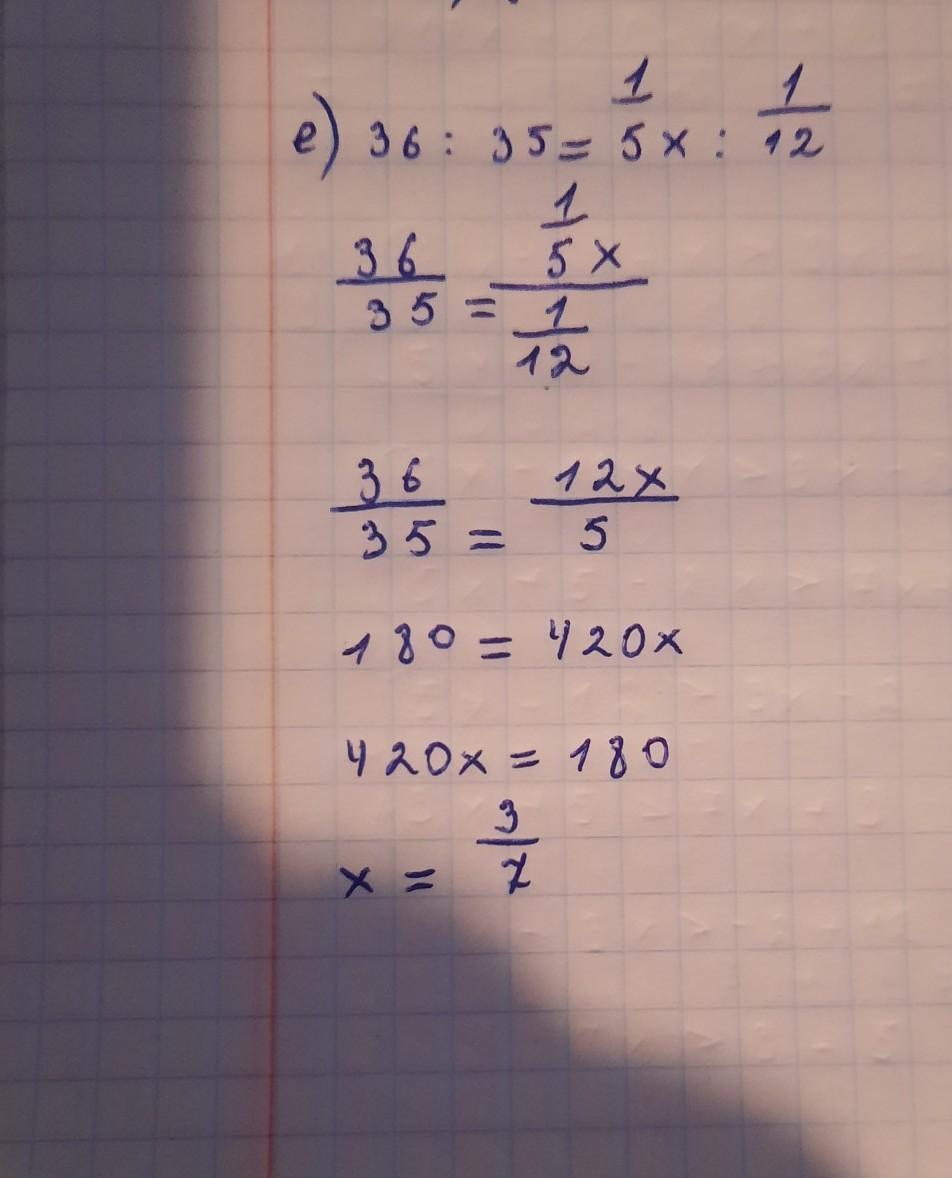 е) 36 : 35 = 1/5 x : 1/12
36/35 = 1/5 x / 1/12
36/35 = 12x/5
180 = 420x
420x = 180
x = 3/7